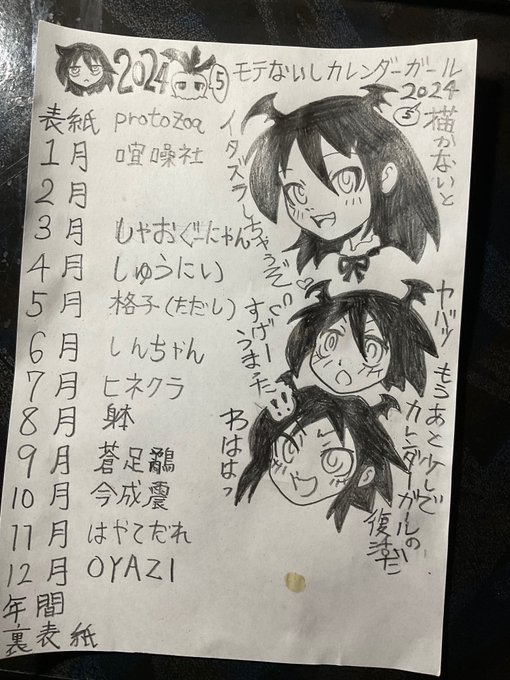 2024 ⑤ モテないしカレンダーガール
2024
⑤
表紙 protozoa
1月 喧噪社
2月
3月 しゃおぐーにゃん
4月 しゅうにい
5月 格子(ただし)
6月 しんちゃん
7月 ヒネクラ
8月 躰
9月 蒼足鷸
10月 今成震
11月 はやてだれ
12月 OYAZI
年間
裏表紙
描かないと
イタズラしちゃうぞ♡
すげー
うまそ
わははっ
ヤバッ もうあと少しで
カレンダーガールの
復活だ